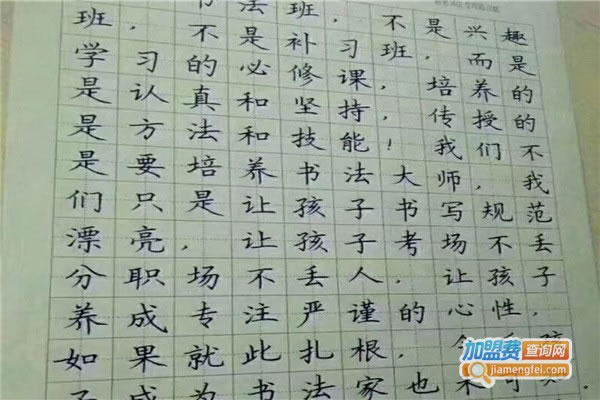 书法班，不是兴趣
班，不是补习班，而是
学习的必修课，培养的
是认真和坚持，传授的
是方法和技能！我们不
是要培养书法大师，我
们只是让孩子书写规范
漂亮，让孩子考场不丢
分职场不丢人，让孩子
养成专注严谨的心性，
如果就此扎根，
子成为书法家也未可
加盟费查询网
jiamengfei.com